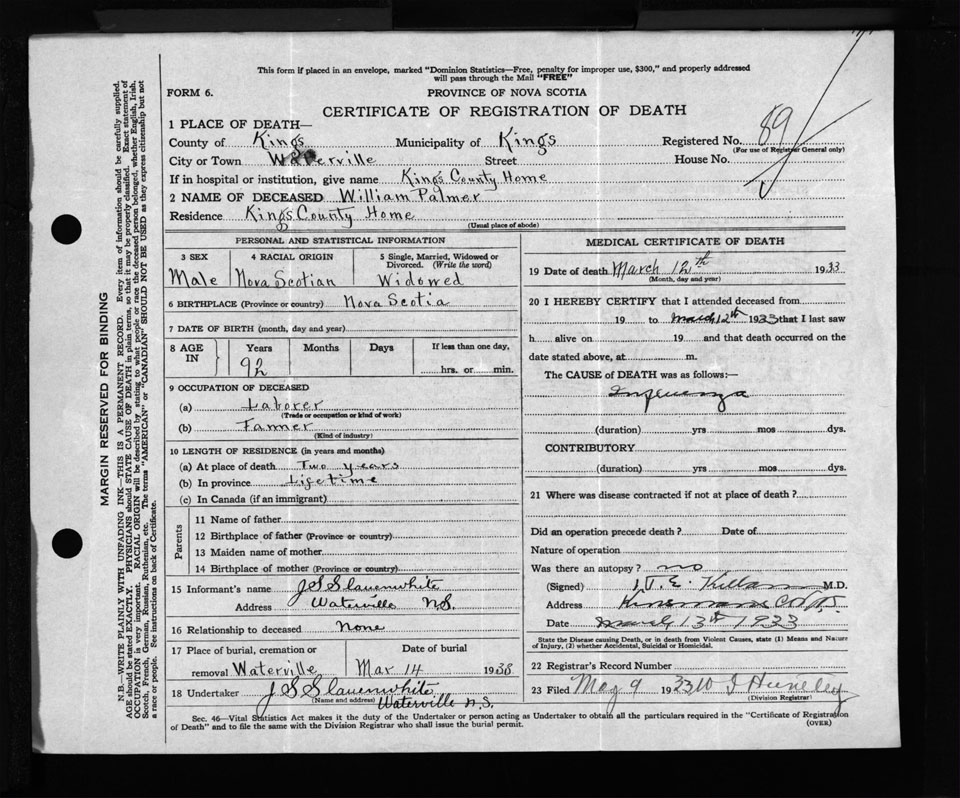 This form if placed in an envelope, marked "Dominion Statistics—Free, penalty for improper use, $300," and properly addressed
will pass through the Mail "FREE"
FORM 6.
PROVINCE OF NOVA SCOTIA
CERTIFICATE OF REGISTRATION OF DEATH
1 PLACE OF DEATH—
County of Kings Municipality of Kings Registered No. 89
(For use of Registrar General only)
City or Town Waterville Street House No.
If in hospital or institution, give name Kings County Home
2 NAME OF DECEASED William Palmer
Residence Kings County Home
(Usual place of abode)
PERSONAL AND STATISTICAL INFORMATION
3 SEX 4 RACIAL ORIGIN 5 Single, Married, Widowed or Divorced. (Write the word)
Male Nova Scotian Widowed
6 BIRTHPLACE (Province or country) Nova Scotia
7 DATE OF BIRTH (month, day and year)
8 AGE IN Years Months Days If less than one day,
92 hrs. or min.
9 OCCUPATION OF DECEASED
(a) Laborer
(Trade or occupation or kind of work)
(b) Farmer
(Kind of industry)
10 LENGTH OF RESIDENCE (in years and months)
(a) At place of death Two years
(b) In province Lifetime
(c) In Canada (if an immigrant)
Parents
11 Name of father
12 Birthplace of father (Province or country)
13 Maiden name of mother
14 Birthplace of mother (Province or country)
15 Informant's name J S Slauenwhite
Address Waterville N.S.
16 Relationship to deceased None
17 Place of burial, cremation or Date of burial
removal Waterville Mar 14 1938
18 Undertaker J S Slauenwhite
(Name and address) Waterville N.S.
MEDICAL CERTIFICATE OF DEATH
19 Date of death March 12th 1933
(Month, day and year)
20 I HEREBY CERTIFY that I attended deceased from
19 to March 12th 1933 that I last saw
h alive on 19 and that death occurred on the
date stated above, at m.
The CAUSE of DEATH was as follows:—
Influenza
(duration) yrs mos dys.
CONTRIBUTORY
(duration) yrs. mos. dys.
21 Where was disease contracted if not at place of death?
Did an operation precede death? Date of
Nature of operation
Was there an autopsy? no
(Signed) E. Killam M.D.
Address
Date March 13th 1933
State the Disease causing Death, or in death from Violent Causes, state (1) Means and Nature
of Injury, (2) whether Accidental, Suicidal or Homicidal.
22 Registrar's Record Number
23 Filed May 9 1933
(Division Registrar)
Sec. 46—Vital Statistics Act makes it the duty of the Undertaker or person acting as Undertaker to obtain all the particulars required in the "Certificate of Registration
of Death" and to file the same with the Division Registrar who shall issue the burial permit.
(OVER)
MARGIN RESERVED FOR BINDING
N.B.—WRITE PLAINLY WITH UNFADING INK—THIS IS A PERMANENT RECORD. Every item of information should be carefully supplied.
AGE should be stated EXACTLY. PHYSICIANS should STATE CAUSE OF DEATH in plain terms, so that it may be properly classified. Exact statement of
OCCUPATION is very important. RACIAL ORIGIN will be described by stating to what people or race the deceased person belonged, whether English, Irish,
Scotch, French, German, Russian, Ruthenian, etc. The terms "AMERICAN" or "CANADIAN" SHOULD NOT BE USED as they express citizenship but not
a race or people. See instructions on back of Certificate.